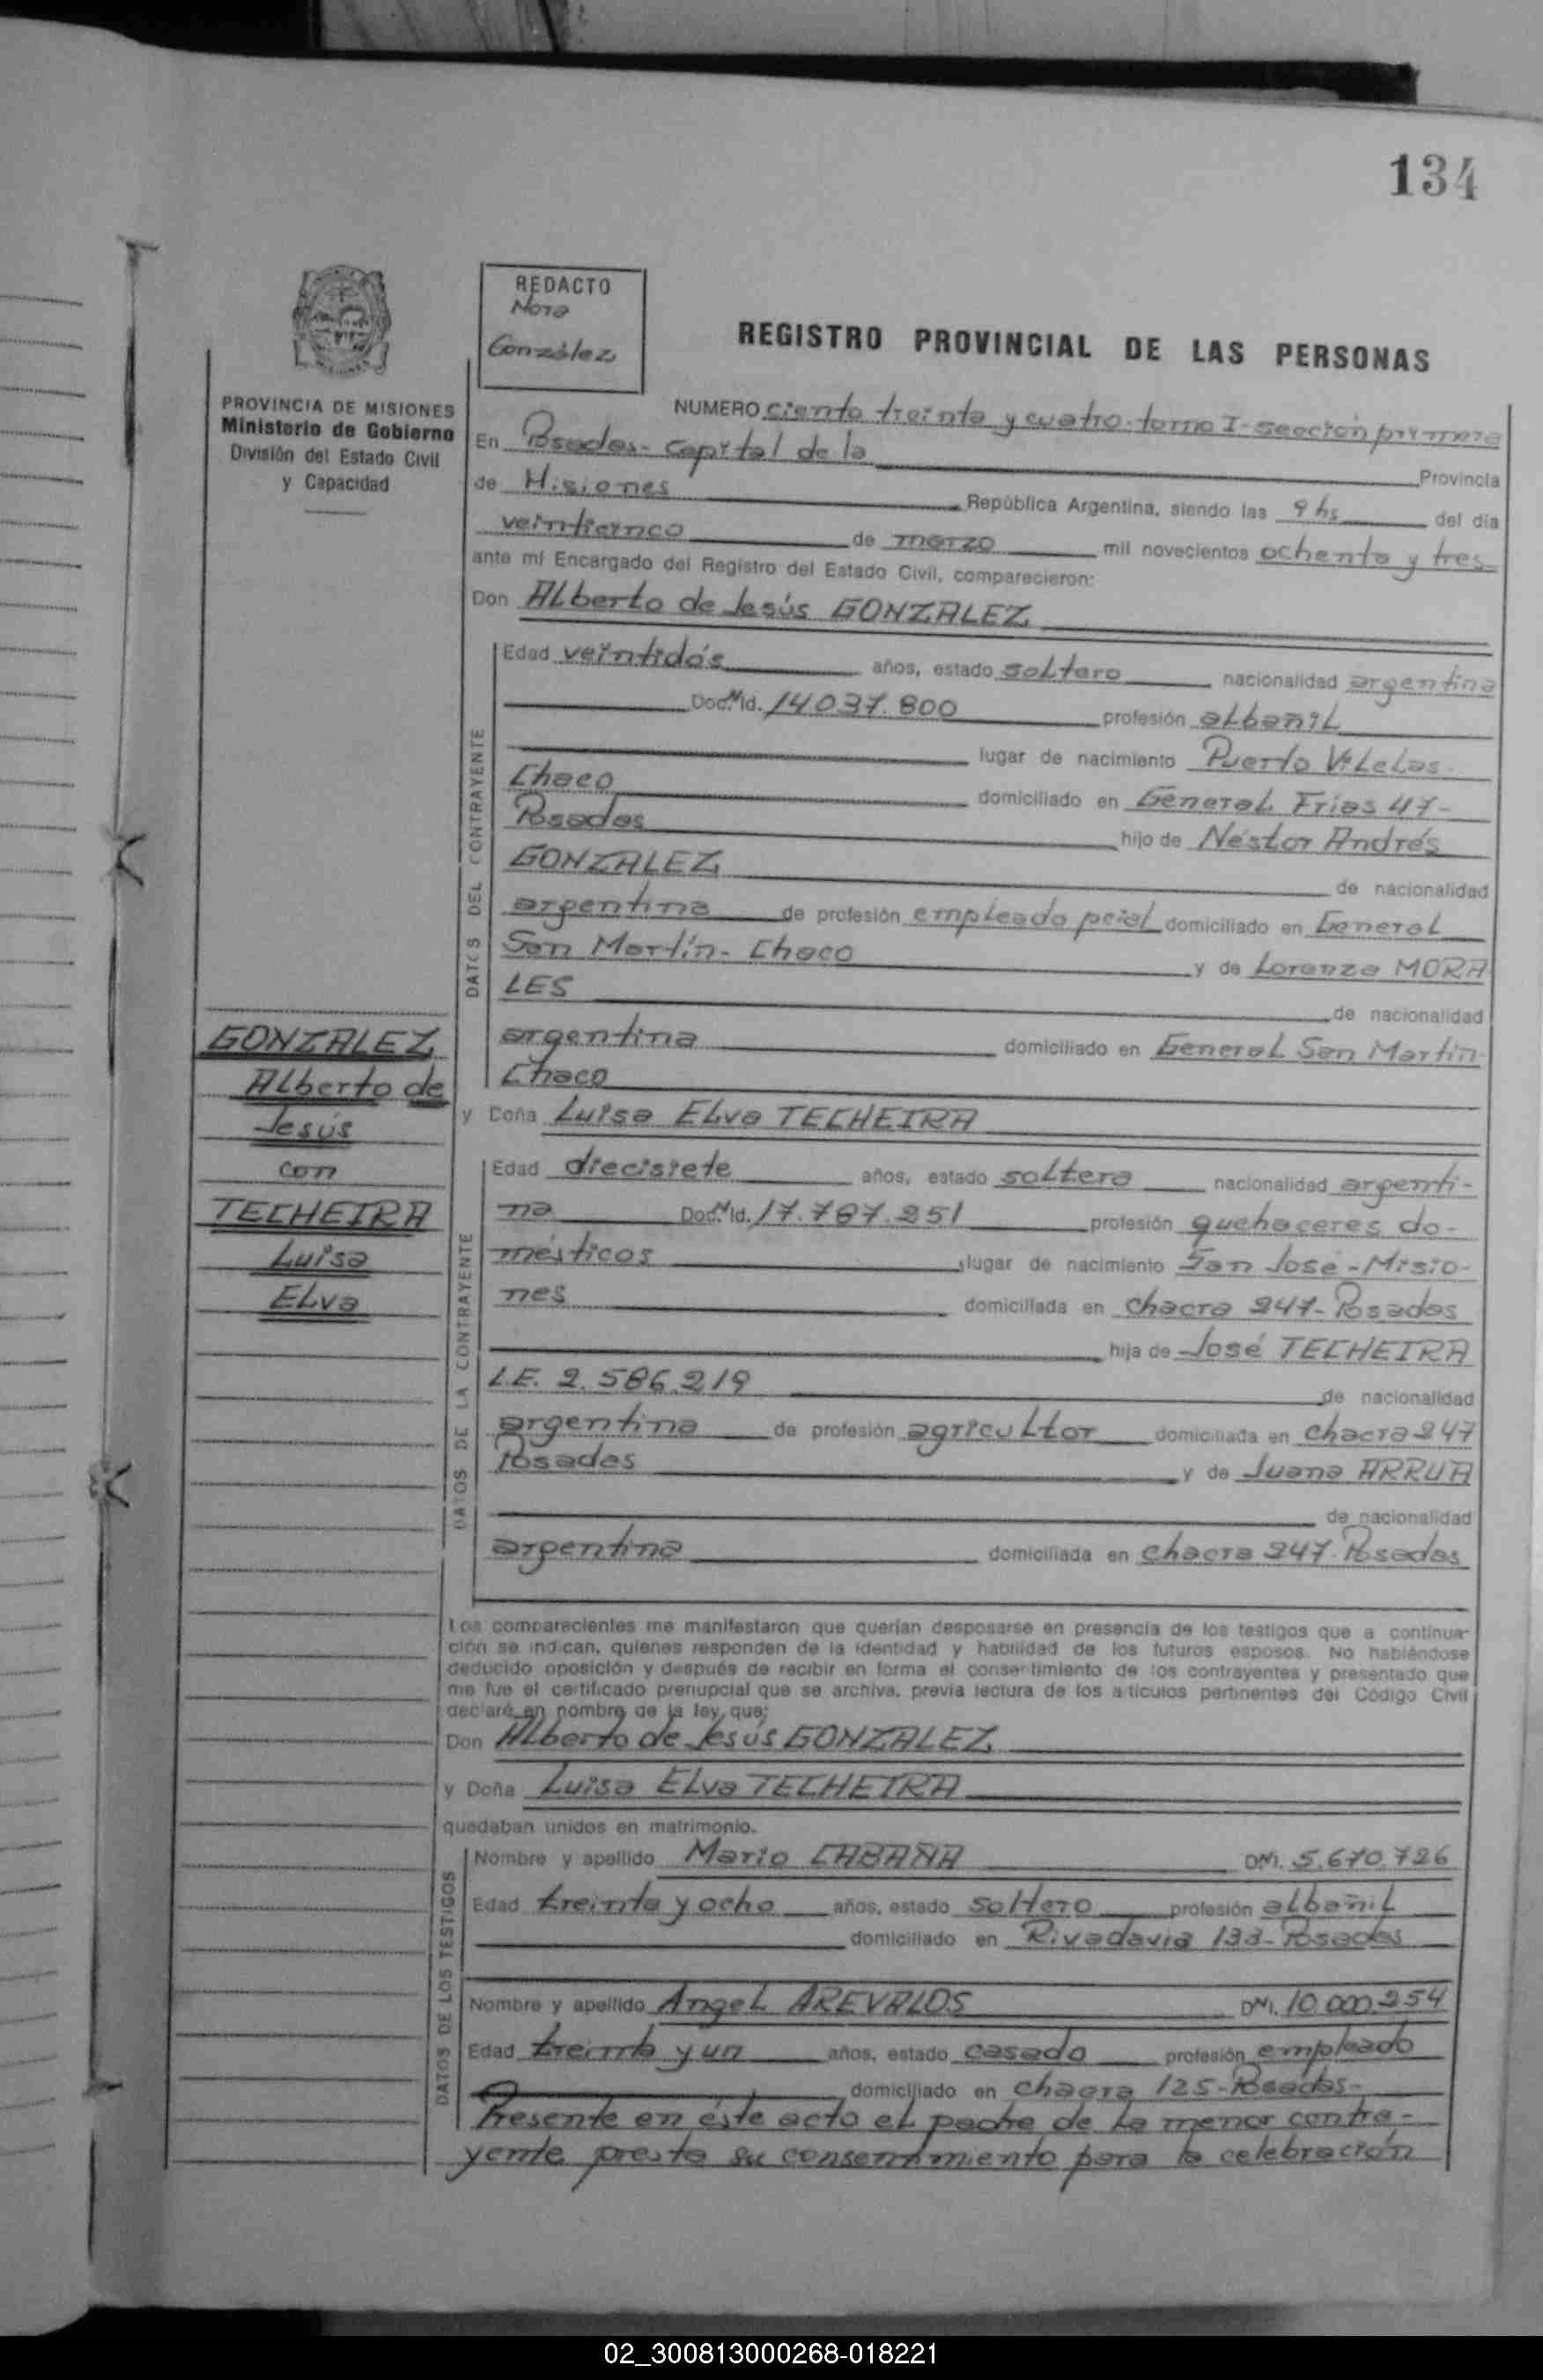 134
REDACTO
Nora
González
REGISTRO PROVINCIAL DE LAS PERSONAS
PROVINCIA DE MISIONES
Ministerio de Gobierno
División del Estado Civil
y Capacidad
NUMERO ciento treinta y cuatro - tomo I - sección primera
En Posadas - capital de la Provincia
de Misiones República Argentina, siendo las 9 hs del día
veinticinco de marzo mil novecientos ochenta y tres
ante mí Encargado del Registro del Estado Civil, comparecieron:
Don Alberto de Jesús GONZALEZ
DATOS DEL CONTRAYENTE
Edad veintidós años, estado soltero nacionalidad argentina
Doc. Nº Id. 14.037.800 profesión albañil
lugar de nacimiento Puerto Vilelas
Chaco domiciliado en General Frías 47-
Posadas hijo de Néstor Andrés
GONZALEZ de nacionalidad
argentina de profesión empleado pcial domiciliado en General
San Martín - Chaco y de Lorenza MORA
LES de nacionalidad
argentina domiciliado en General San Martín
Chaco
y Doña Luisa Elva TECHEIRA
DATOS DE LA CONTRAYENTE
Edad diecisiete años, estado soltera nacionalidad argenti-
na Doc. Nº Id. 17.787.251 profesión quehaceres do-
mésticos lugar de nacimiento San José - Misio-
nes domiciliada en chacra 247 - Posadas
hija de José TECHEIRA
L.E. 2.586.219 de nacionalidad
argentina de profesión agricultor domiciliada en chacra 247
Posadas y de Juana ARRUA
de nacionalidad
argentina domiciliada en chacra 247 - Posadas
GONZALEZ
Alberto de
Jesús
con
TECHEIRA
Luisa
Elva
Los comparecientes me manifestaron que querían desposarse en presencia de los testigos que a continua-
ción se indican, quienes responden de la identidad y habilidad de los futuros esposos. No habiéndose
deducido oposición y después de recibir en forma el consentimiento de los contrayentes y presentado que
me fue el certificado prenupcial que se archiva, previa lectura de los artículos pertinentes del Código Civil
declaré en nombre de la ley, que:
Don Alberto de Jesús GONZALEZ
y Doña Luisa Elva TECHEIRA
quedaban unidos en matrimonio.
DATOS DE LOS TESTIGOS
Nombre y apellido Mario CABAÑA DNI. 5.670.726
Edad treinta y ocho años, estado soltero profesión albañil
domiciliado en Rivadavia 133 - Posadas
Nombre y apellido Angel AREVALOS DNI. 10.000.254
Edad treinta y un años, estado casado profesión empleado
domiciliado en chacra 125 - Posadas -
Presente en éste acto el padre de la menor contra-
yente presta su consentimiento para la celebración
02_300813000268-018221